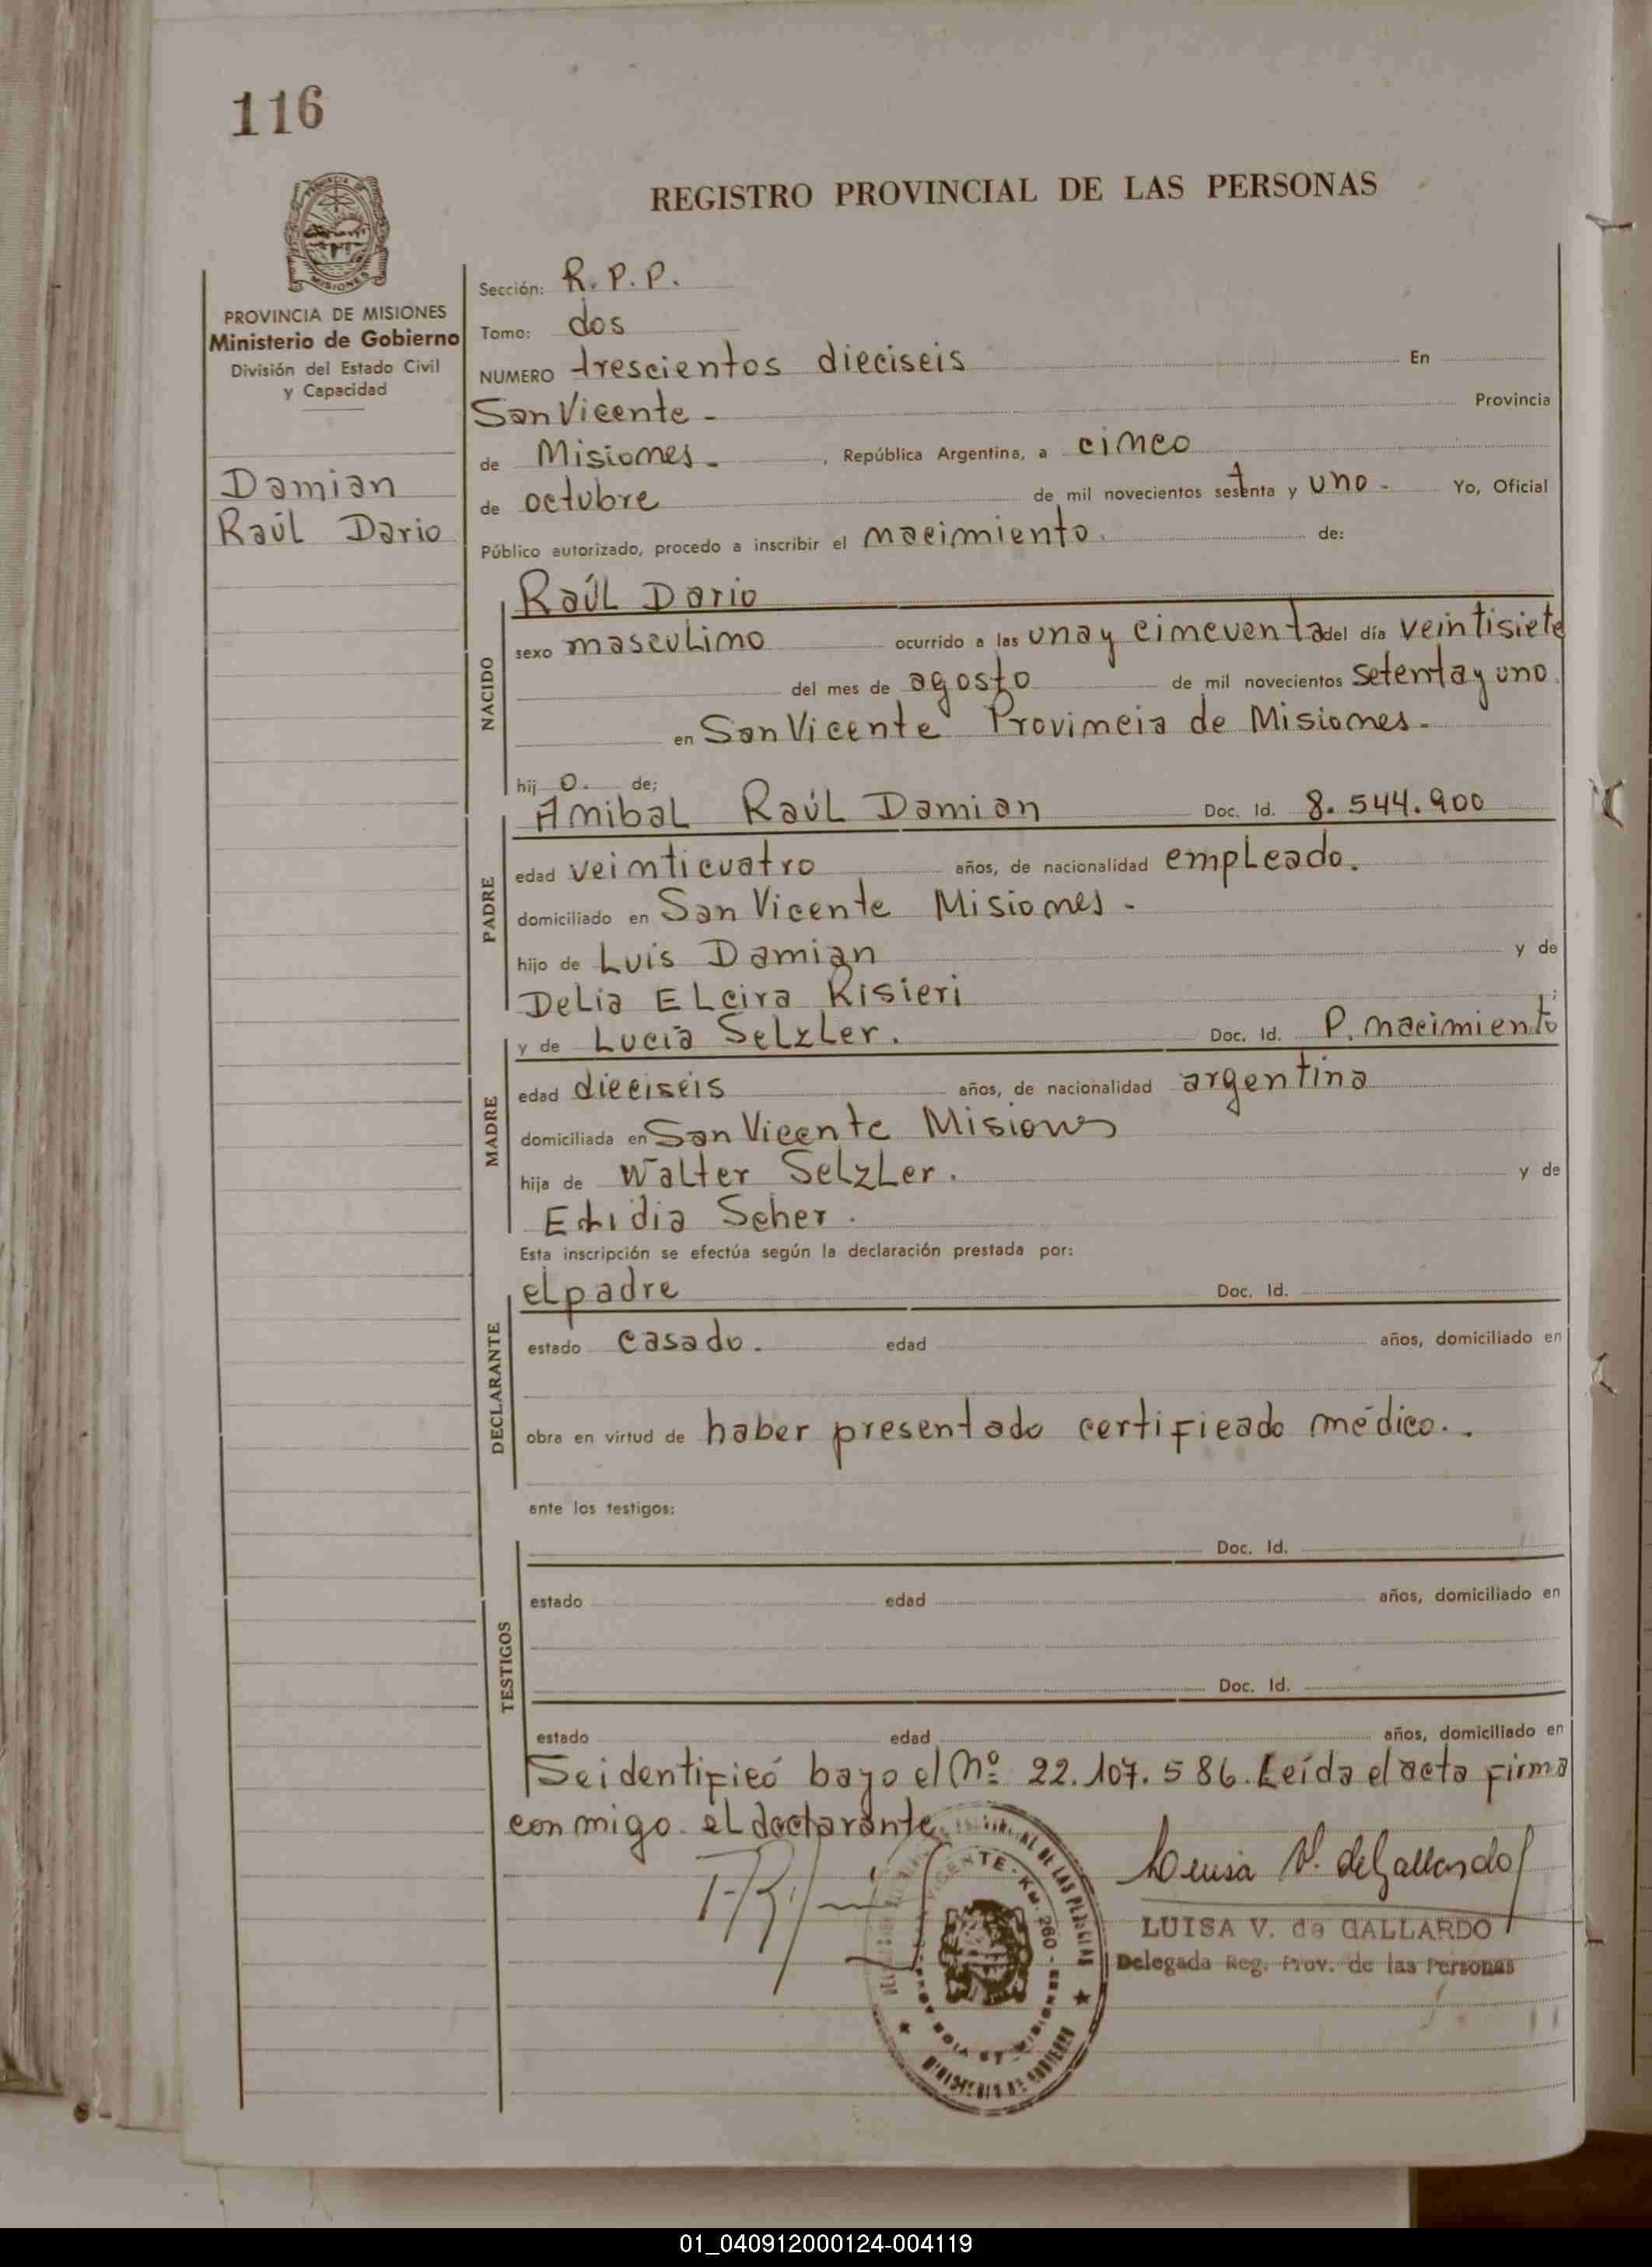 116
REGISTRO PROVINCIAL DE LAS PERSONAS
MISIONES
PROVINCIA DE MISIONES
Ministerio de Gobierno
División del Estado Civil
y Capacidad
Damian
Raúl Dario
Sección: R. P. P.
Tomo: dos
NUMERO trescientos dieciseis En
San Vicente - Provincia
de Misiones - , República Argentina, a cinco
de octubre de mil novecientos sesenta y uno - Yo, Oficial
Público autorizado, procedo a inscribir el nacimiento. de:
NACIDO
Raúl Dario
sexo masculino ocurrido a las una y cincuenta del día veintisiete
del mes de agosto de mil novecientos setenta y uno.
en San Vicente Provincia de Misiones -
hij o. de;
PADRE
Anibal Raúl Damian Doc. Id. 8.544.900
edad veinticuatro años, de nacionalidad empleado.
domiciliado en San Vicente Misiones -
hijo de Luis Damian y de
Delia Elcira Risieri ;
MADRE
y de Lucia Selzler. Doc. Id. P. nacimiento
edad dieciseis años, de nacionalidad argentina
domiciliada en San Vicente Misiones
hija de Walter Selzler. y de
Seher.
Esta inscripción se efectúa según la declaración prestada por:
DECLARANTE
el padre Doc. Id.
estado casado. edad años, domiciliado en
obra en virtud de haber presentado certificado médico..
ante los testigos:
TESTIGOS
Doc. Id.
estado edad años, domiciliado en
Doc. Id.
estado edad años, domiciliado en
Se identificó bajo el Nº 22.107.586. Leída el acta firma
conmigo el declarante
Luisa V. de Gallardo
LUISA V. de GALLARDO
Delegada Reg. Prov. de las Personas
VICENTE - KM. 260 -
MINISTERIO DE GOBIERNO
01_040912000124-004119